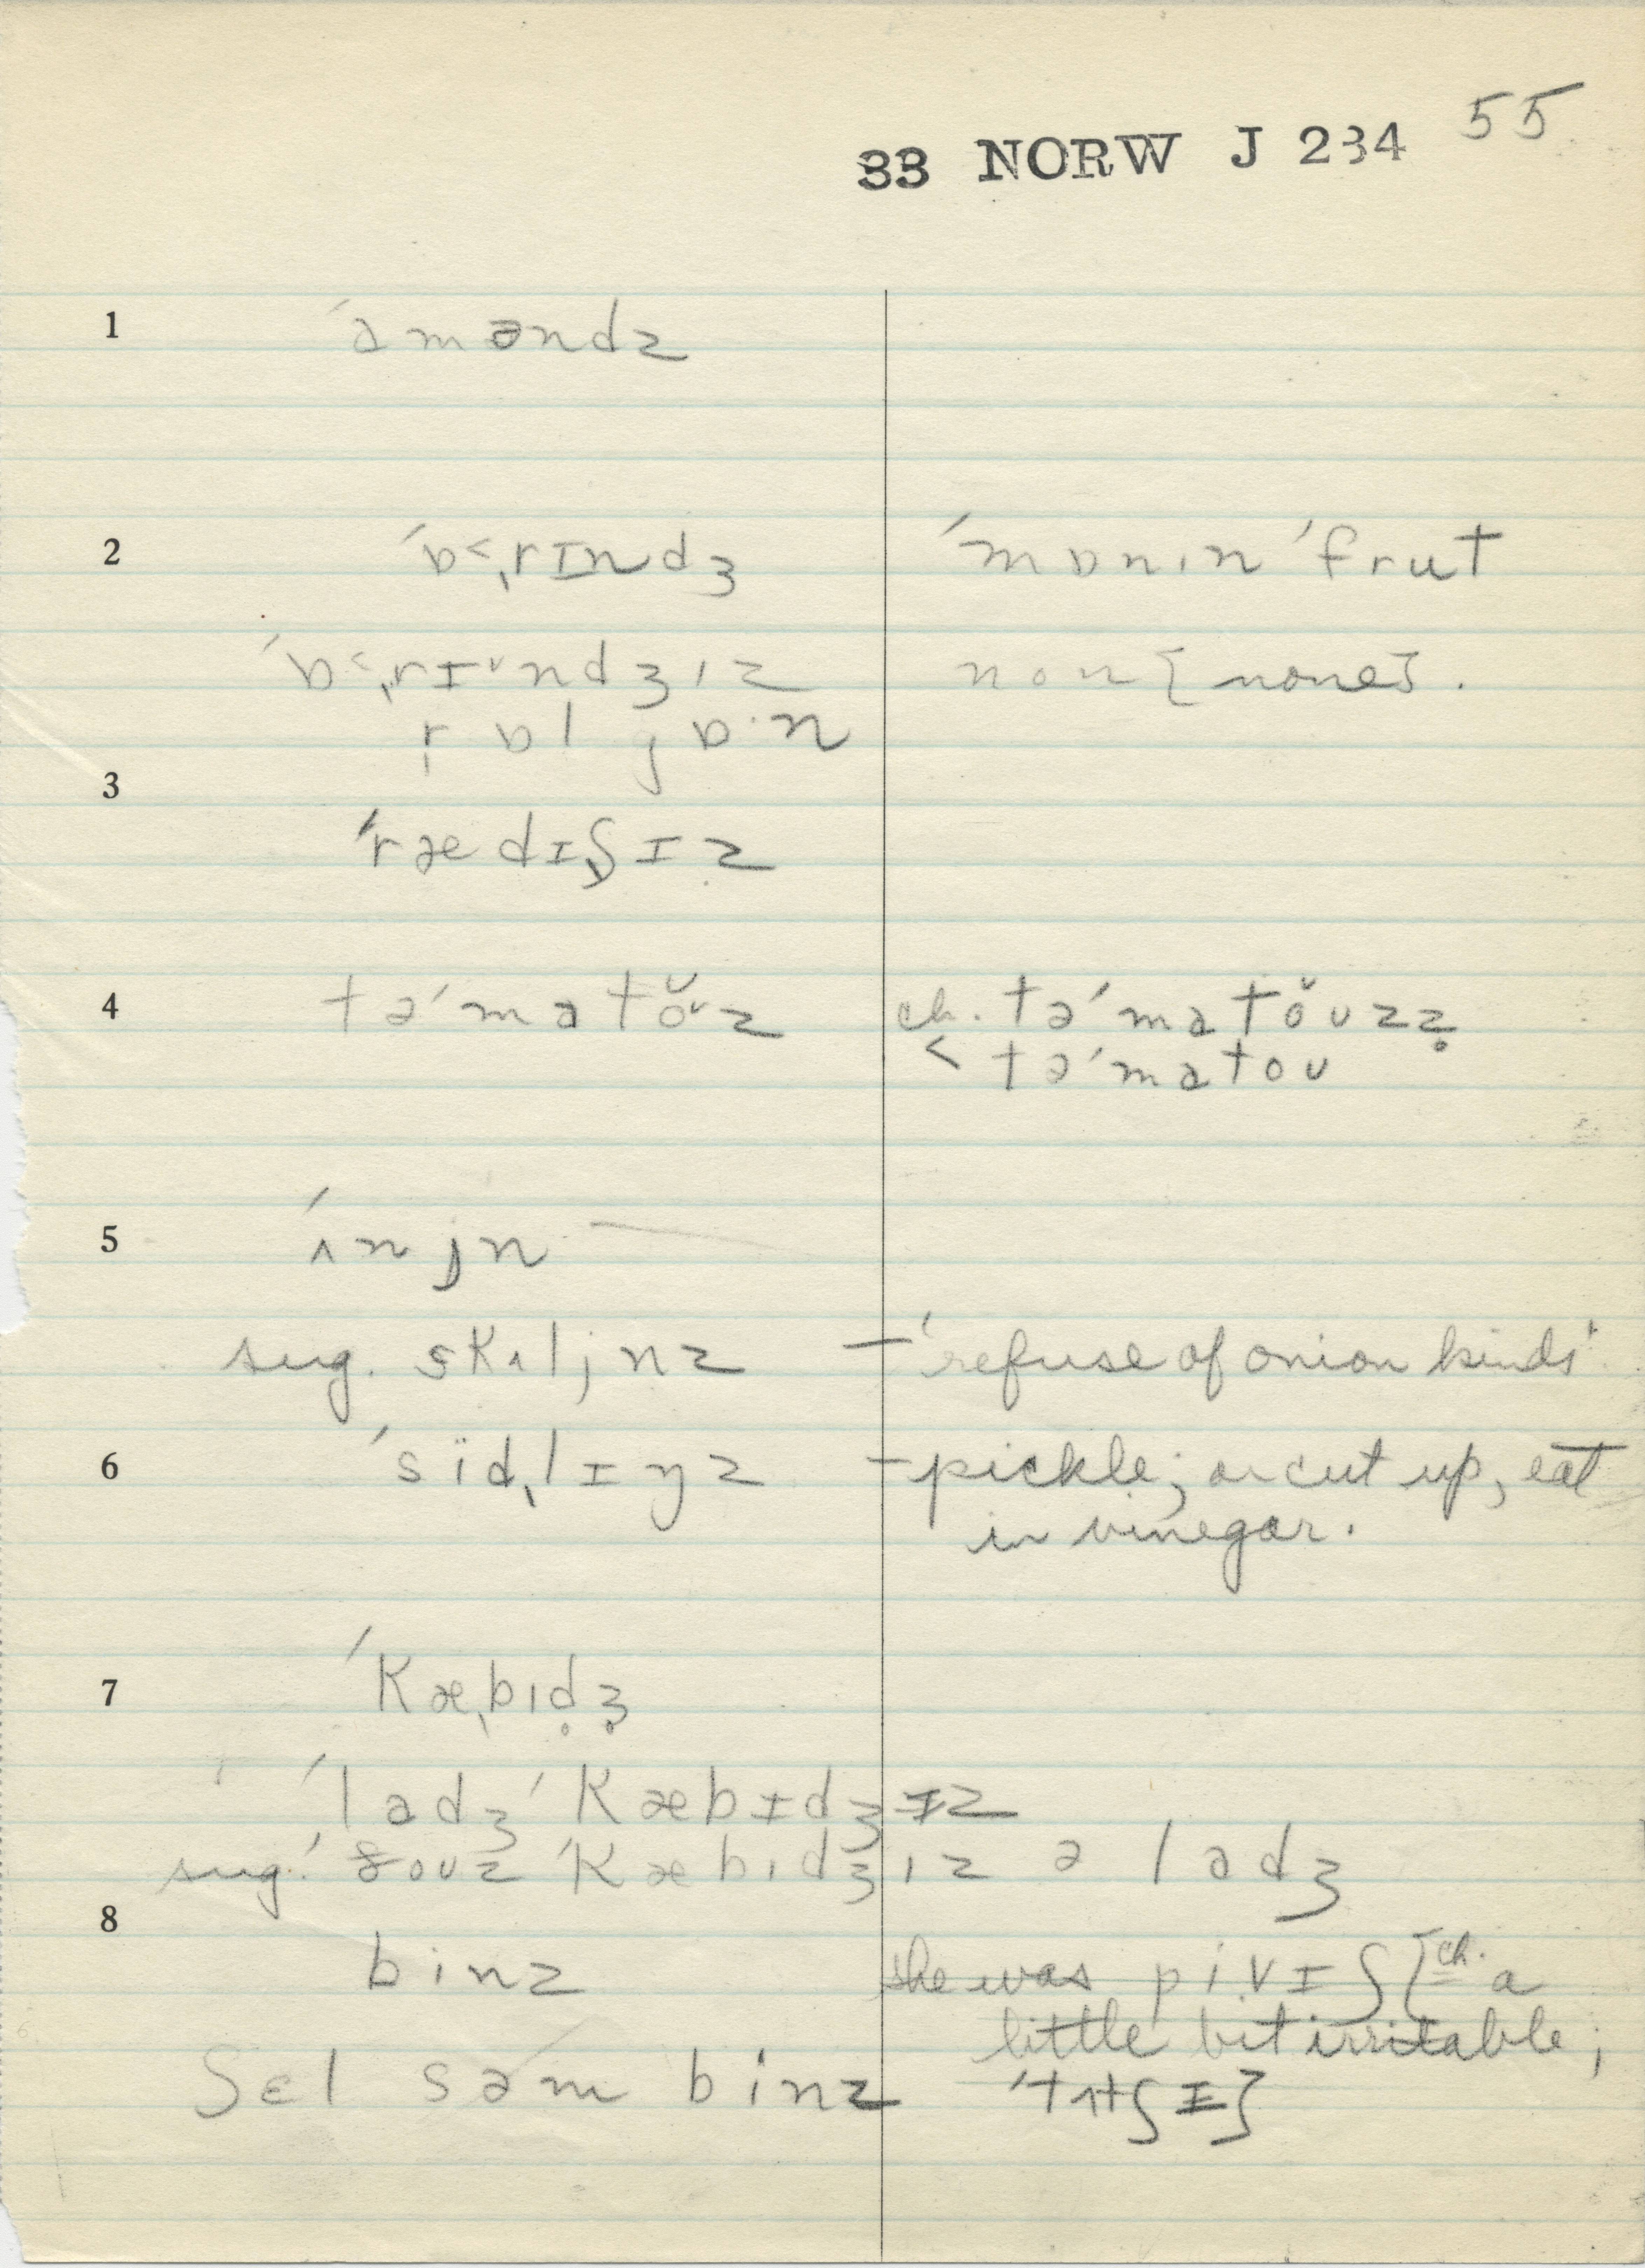 33 NORW J 234 55
1 ˈaməndz
2 ˈɒ˂ˌrɪndʒ ˈmɒnɪn ˈfrut
ˈɒ˂ˌrɪᵛndʒɪz non [none].
rɒl jɒ·n
3
ˈrædɪʃɪz
4 təˈmatŏᵛz ch. təˈmatŏʊzz̥
< təˈmatoʊ
5 ˈʌnjn
sug. skʌljnz – 'refuse of onion kinds'
6 ˈsïdˌlɪŋz – pickle; or cut up, eat
in vinegar.
7 ˈKæˌbɪd̥ʒ̊
ˈladʒ ˈKæbɪdʒɪz
sug. ˈðoʊz ˈKæbɪdʒɪz ə ladʒ
8
binz she was pivɪʃ [ch. a
little bit irritable;
ʃɛl səm binz ˈtʌtʃɪ]